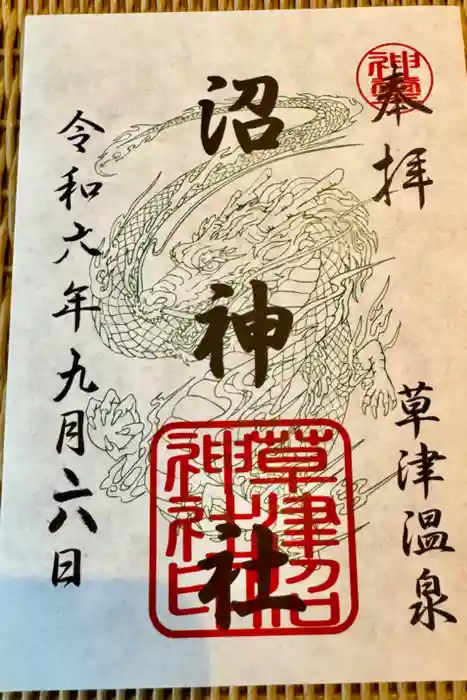 奉拝
草津温泉
沼神社
令和六年九月六日
草津沼
神社印